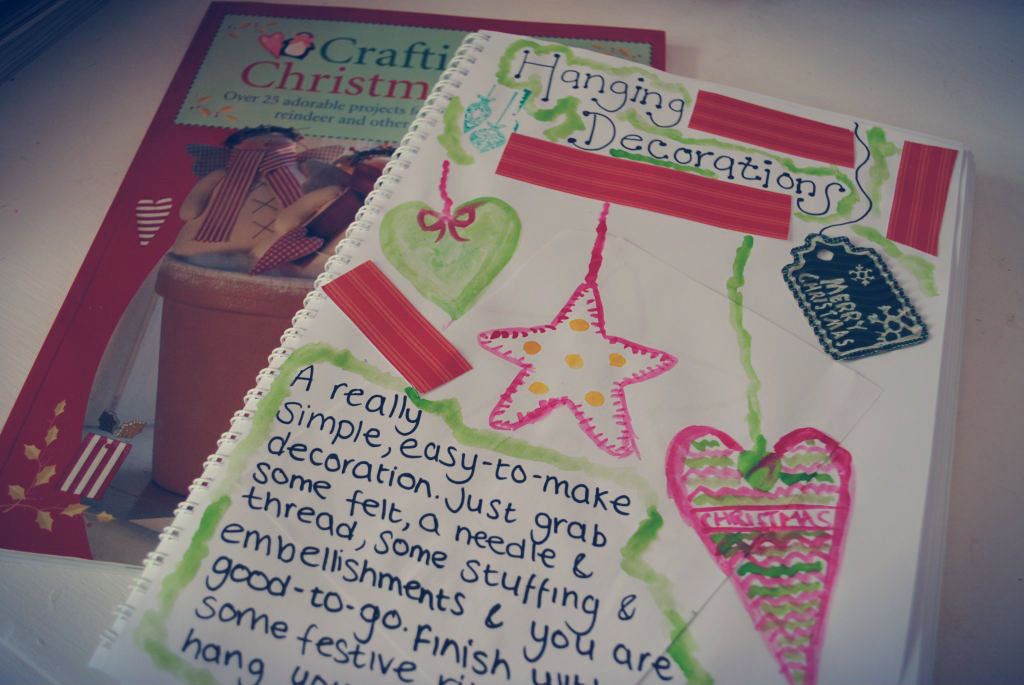 Crafti
Christm
Over 25 adorable projects f
reindeer and other
Hanging
Decorations
MERRY
CHRISTMAS
CHRISTMAS
A really
Simple, easy-to-make
decoration. Just grab
some felt, a needle &
thread, some stuffing &
embellishments & you are
good-to-go. Finish
some festive
hang